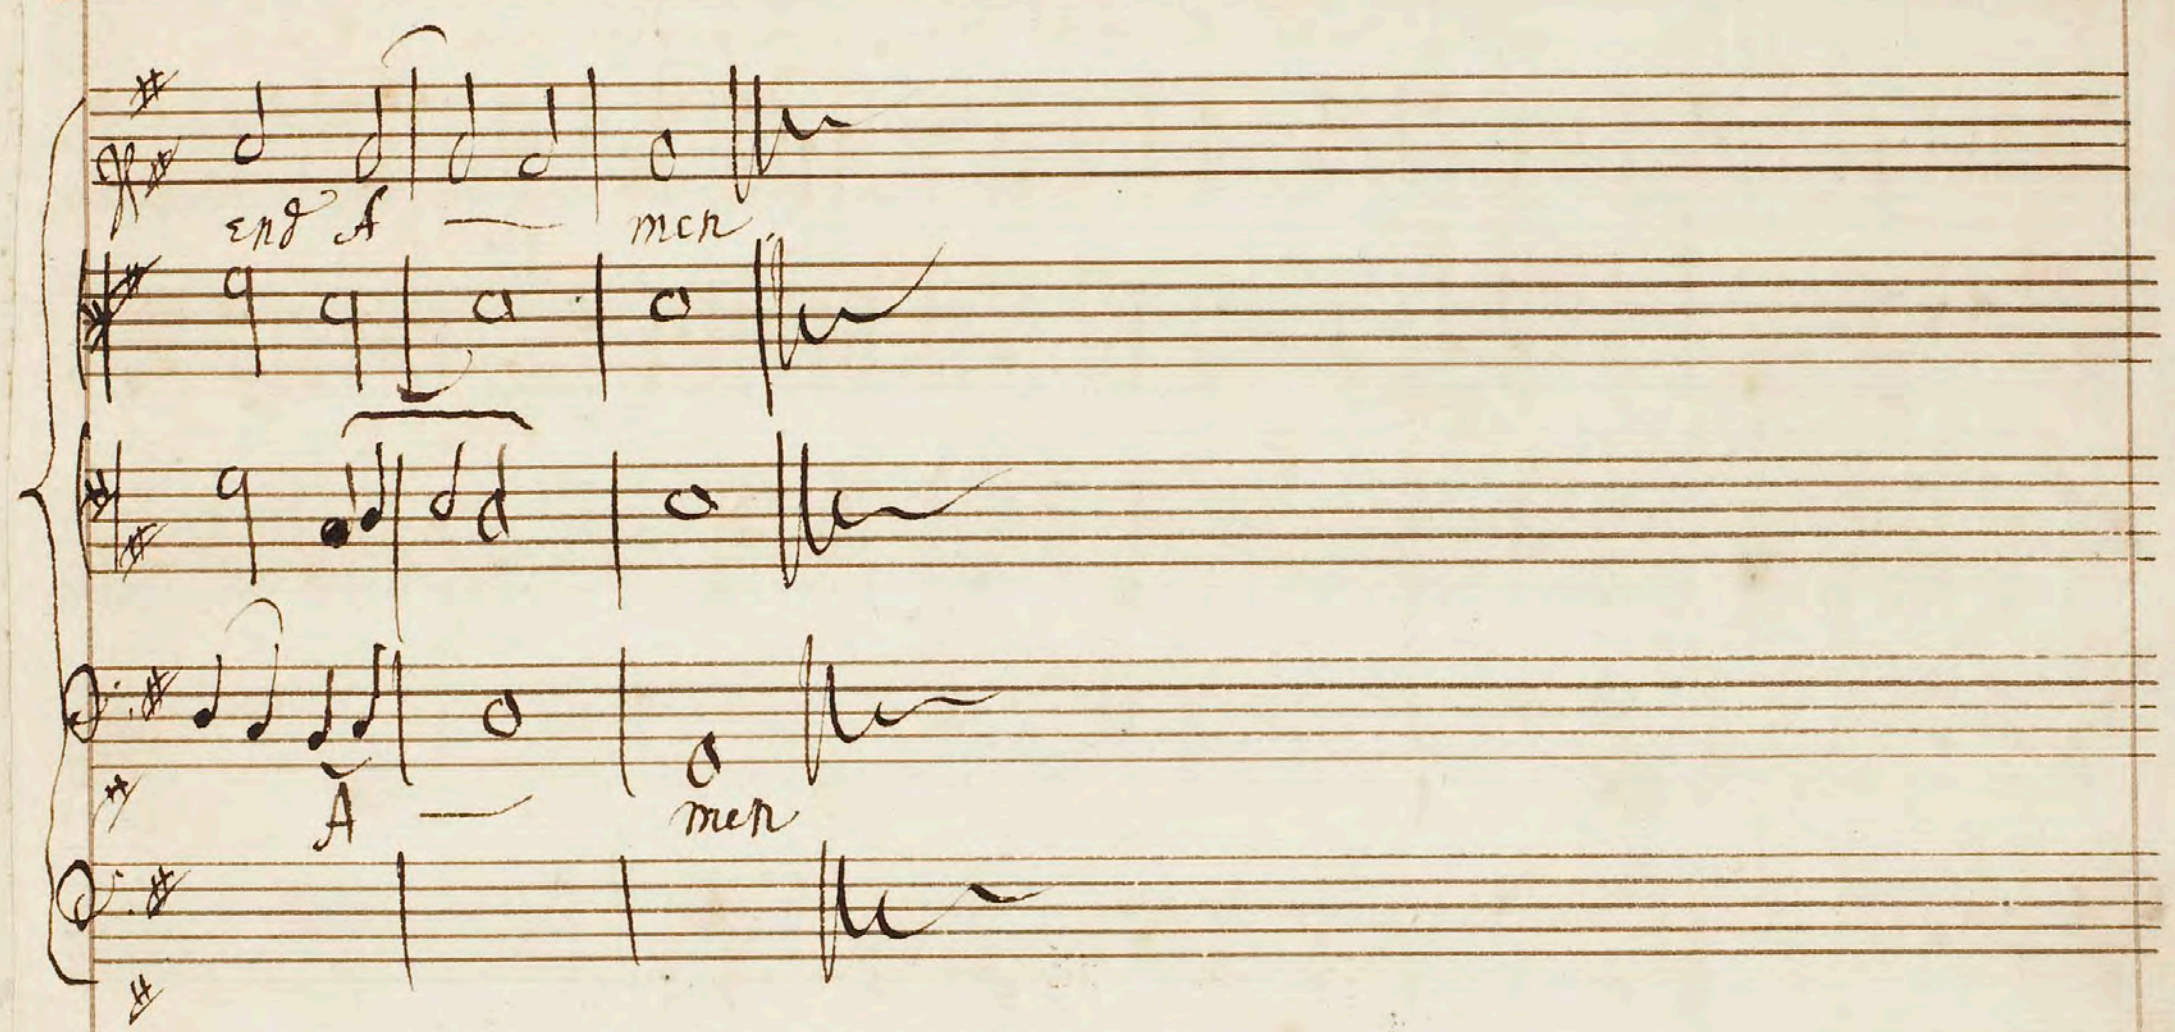 end A — men
A — men